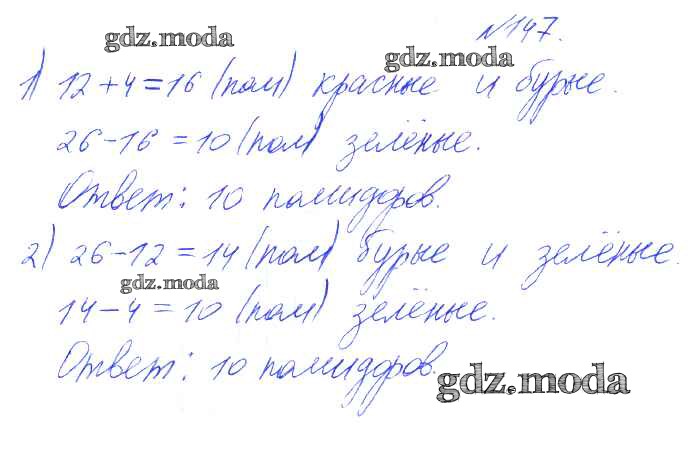 №147.
gdz.moda
gdz.moda
1) 12+4=16 (пом) красные и бурые.
26-16=10 (пом) зелёные.
Ответ: 10 помидоров.
2) 26-12=14 (пом) бурые и зелёные.
gdz.moda
14-4=10 (пом) зелёные.
Ответ: 10 помидоров.
gdz.moda